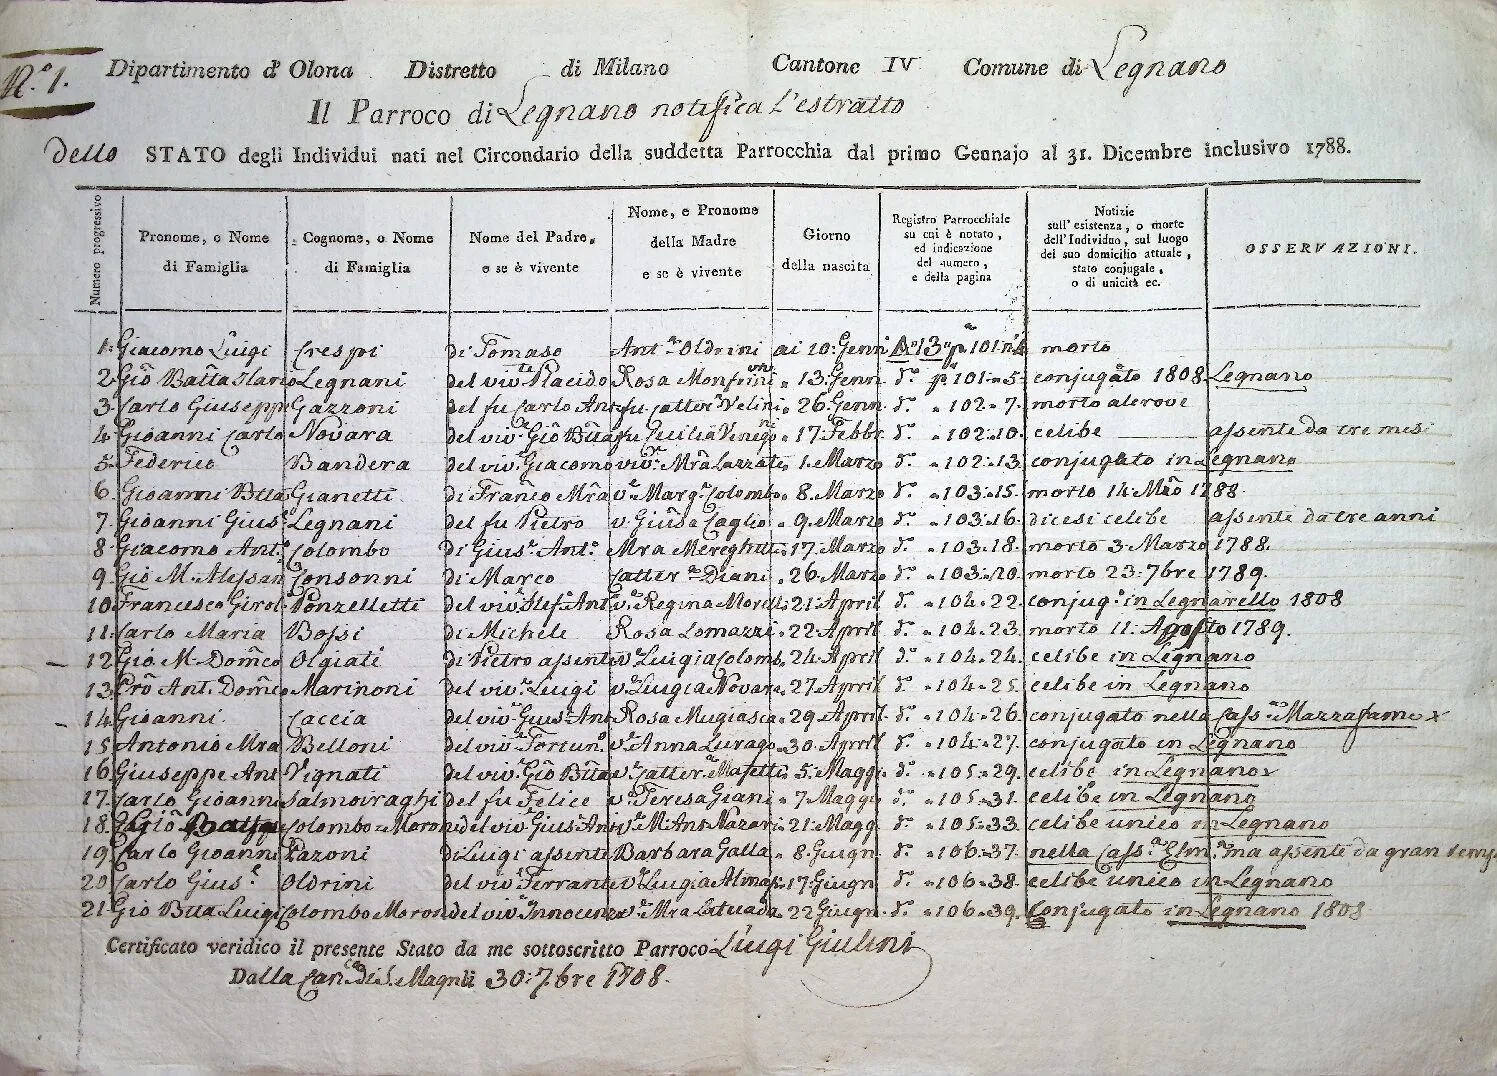 N.° 1. Dipartimento d' Olona Distretto di Milano Cantone IV Comune di Legnano
Il Parroco di Legnano notifica L'estratto
dello STATO degli Individui nati nel Circondario della suddetta Parrocchia dal primo Gennajo al 31. Dicembre inclusivo 1788.
Numero progressivo
Pronome, o Nome
di Famiglia
Cognome, o Nome
di Famiglia
Nome del Padre,
e se è vivente
Nome, e Pronome
della Madre
e se è vivente
Giorno
della nascita
Registro Parrocchiale
su cui è notato,
ed indicazione
del numero,
e della pagina
Notizie
sull' esistenza, o morte
dell' Individuo, sul luogo
del suo domicilio attuale,
stato conjugale,
o di unicità ec.
OSSERVAZIONI.
1. Giacomo Luigi Crespi di Tomaso Ant.ª Oldrini ai 10: Genn 13 p.ª 101 n.° 4 morto
2. Giõ Batta Legnani del viv.te Placido Rosa Monfrini 13. Genn. d.° p.ª 101. 5. conjugato 1808 Legnano
3. Carlo Giusepp Gazzoni del fu Carlo Ant. fu Catter.ª Velini 26. Genn. d.° 102. 7. morto alerove
4. Gioanni Carlo Novara del viv.e Giõ Btta fu 17. Febbr. d.° 102. 10. celibe assente da tre mesi
5. Federico Bandera del viv.e Giacomo viv.e Mrã Lazzat 1. Marzo d.° 102. 13. conjugato in Legnano
6. Gioanni Btta Gianetti di Franc̃o Mrã v.e Marg.ª Colombo 8. Marzo d.° 103. 15. morto 14. Mrão 1788.
7. Gioanni Gius.e Legnani del fu Pietro v. Gius̃a Caglio 9. Marzo d.° 103. 16. dicesi celibe assente da tre anni
8. Giacomo Ant.° Colombo di Gius.e Ant.° Mra Mereghetti 17. Marzo d.° 103. 18. morto 3. Marzo 1788.
9. Gio M. Alessan Consonni di Marco Catter.ª Diani 26. Marzo d.° 103. 20. morto 23. 7bre 1789.
10. Francesco Girol. Ponzelletti del viv.e Stef. Ant v.e Regina Morelli 21. April d.° 104. 22. conjug.° in Legnarello 1808
11. Carlo Maria Bossi di Michele Rosa Lomazzi 22. April d.° 104. 23. morto 11. Agosto 1789.
12. Gio M. Dom̃co Olgiati di Pietro assente v.e Luigia Colomb. 24. April d.° 104. 24. celibe in Legnano
13. Ant. Dom̃co Marinoni del viv.e Luigi v.e Luigia Novare 27. April d.° 104. 25. celibe in Legnano
14. Gioanni. Caccia del viv.e Gius.e Ant Rosa Mugiasca 29. April. d.° 104. 26. conjugato nella Cass.na Mazzafame
15 Antonio Mra Belloni del viv.e Fortun.° v.e Anna Lurago 30. April d.° 104. 27. conjugato in Legnano
16. Giuseppe Ant Vignati del viv.e Giõ Btta v.e Catter.ª Masetti 5. Magg. d.° 105. 29. celibe in Legnano
17. Carlo Gioanni Salmoiraghi del fu Felice v.e Teresa Giani 7. Magg. d.° 105. 31. celibe in Legnano
18. Colombo Moroni del viv.e Gius.e Ant v.e M. Ant. Nazari 21. Magg. d.° 105. 33. celibe unico in Legnano
19. Carlo Gioanni Pazoni di Luigi assente Barbara Galla 8. Giugn. d.° 106. 37. nella Cass.ª ma assente da gran temp
20 Carlo Gius.e Oldrini del viv.e Ferrante v.e Luigia 17. Giugn. d.° 106. 38. celibe unico in Legnano
21. Gio Btta Luigi Colombo Moron del viv.e Innocenz v.e Mra Latuada 22 Giugn. d.° 106. 39. Conjugato in Legnano 1808
Certificato veridico il presente Stato da me sottoscritto Parroco Luigi Giulini
Dalla Can.ca di S. Magno li 30: 7bre 1808.